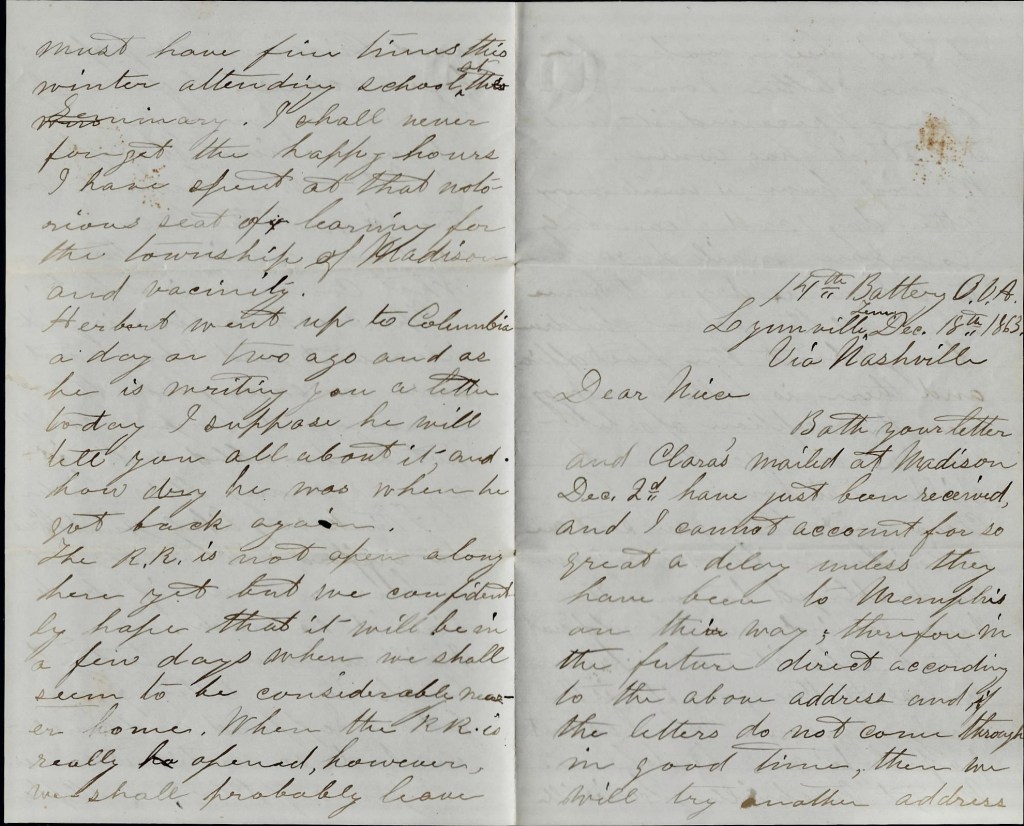 must have fine times this
winter attending school at the
Seminary. I shall never
forget the happy hours
I have spent at that noto-
rious seat of learning for
the township of Madison
and vacinity.
Herbert went up to Columbia
a day or two ago and as
he is writing you a letter
today I suppose he will
tell you all about it, and
how dry he was when he
got back again.
The R.R. is not open along
here yet but we confident
ly hope that it will be in
a few days when we shall
seem to be considerably near-
er home. When the R.R. is
really be opened, however,
we shall probably leave
14th Battery O.V.A.
Lynnville, Tenn. Dec. 18th 1863.
Via Nashville
Dear Niece
Both your letter
and Clara's mailed at Madison
Dec. 2d have just been received,
and I cannot account for so
great a delay unless they
have been to Memphis
on their way; therefore in
the future direct according
to the above address and if
the letters do not come through
in good time, then we
will try another address